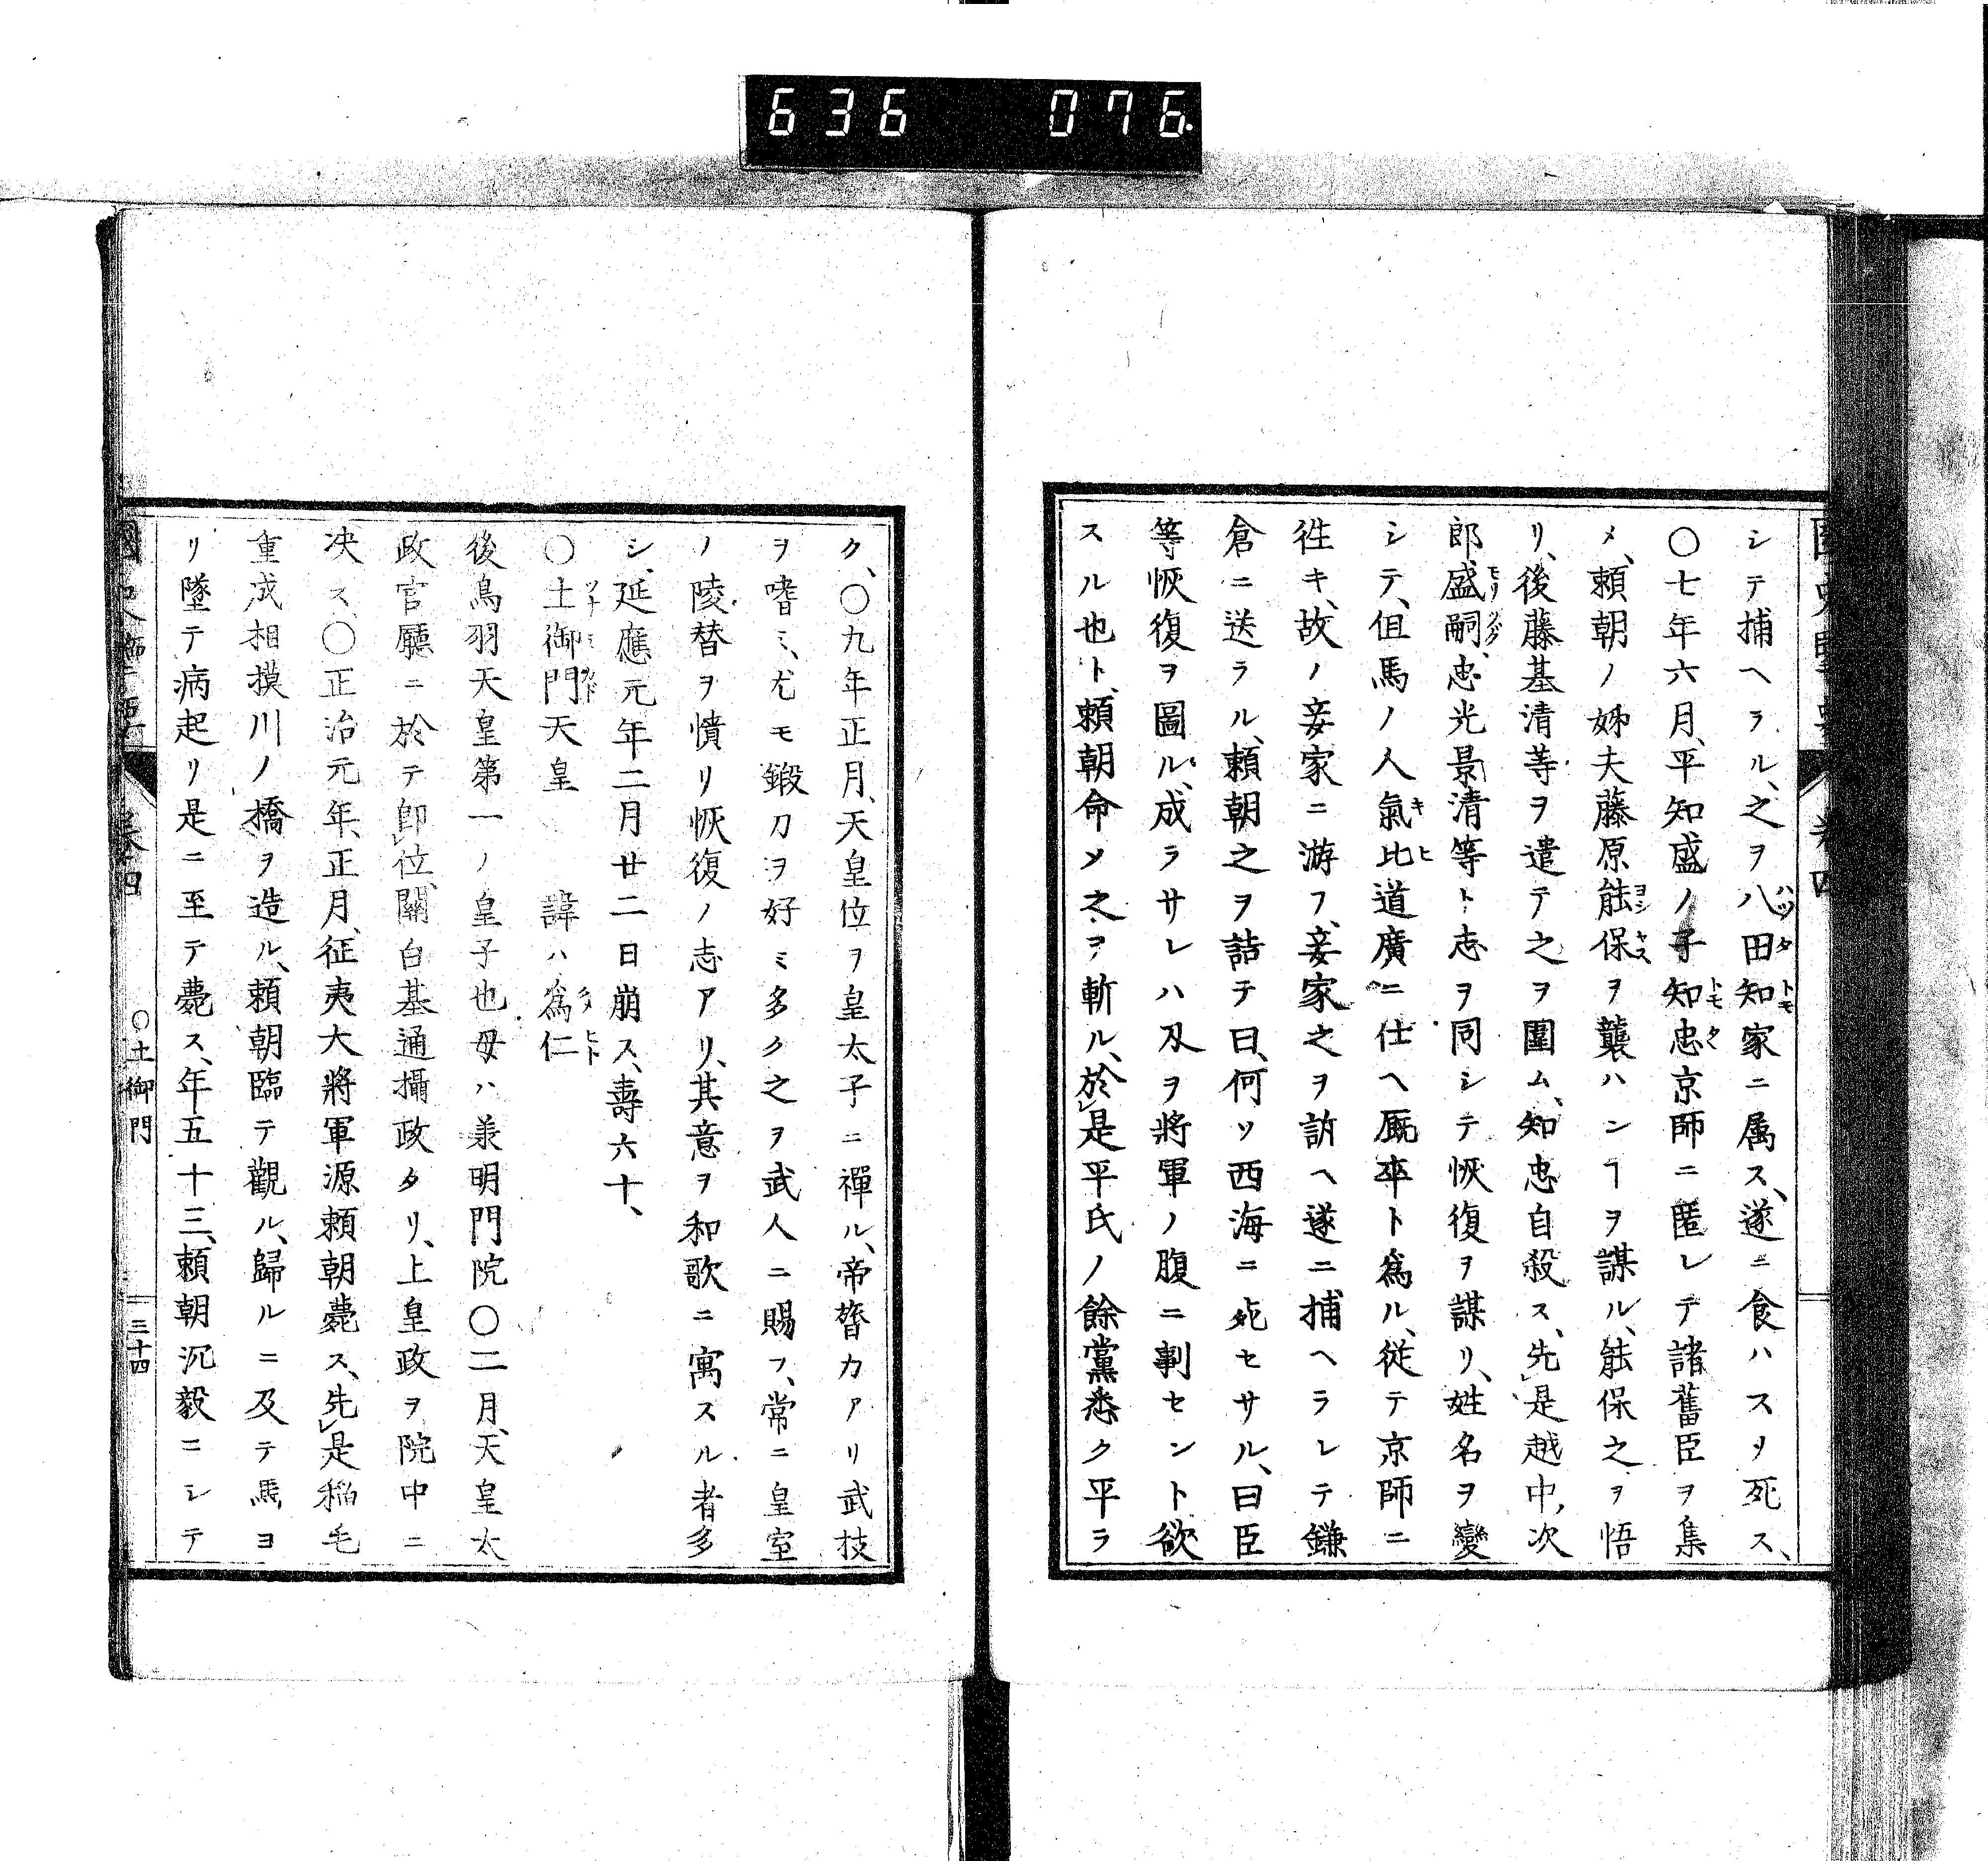 636 076
シテ捕ヘラル、之ヲ八田知家ニ属ス、遂ニ食ハスソ死ス、
〇七年六月、平知盛ノ子知忠京師ニ匿レテ諸舊臣ヲ集
メ、頼朝ノ姊夫藤原能保ヲ襲ハンヿヲ謀ル、能保之ヲ悟
リ、後藤基清等ヲ遣テ之ヲ圍ム、知忠自殺ス、先是越中次
郎盛嗣、忠光景清等ト志ヲ同シテ恢復ヲ謀リ、姓名ヲ變
シテ、但馬ノ人氣比道廣ニ仕ヘ厩卒ト爲ル、従テ京師ニ
徃キ、故ノ妾家ニ游フ、妾家之ヲ訴ヘ遂ニ捕ヘラレテ鎌
倉ニ送ラル、頼朝之ヲ詰テ曰、何ソ西海ニ死セサル、曰臣
等恢復ヲ圖ル、成ラサレハ刄ヲ將軍ノ腹ニ剚セント欲
スル也ト、頼朝命ソ之ヲ斬ル、於是平氏ノ餘黨悉ク平ラ
ク、〇九年正月、天皇位ヲ皇太子ニ禪ル、帝膂力アリ武技
ヲ嗜ミ、尤モ鍛刀ヲ好ミ多ク之ヲ武人ニ賜フ、常ニ皇室
ノ陵替ヲ憤リ恢復ノ志アリ、其意ヲ和歌ニ寓スル者多
シ、延應元年二月廿二日崩ス、壽六十、
〇土御門天皇 諱ハ爲仁
後鳥羽天皇第一ノ皇子也母ハ承明門院〇二月、天皇太
政官廳ニ於テ即位、關白基通攝政タリ、上皇政ヲ院中ニ
决ス、〇正治元年、正月、征夷大將軍源頼朝薨ス、先是稲毛
重成相摸川ノ橋ヲ造ル、頼朝臨テ觀ル、歸ルニ及テ馬ヨ
リ墜テ病起リ是ニ至テ薨ス、年五十三、頼朝沉毅ニシテ
〇土御門
三十四